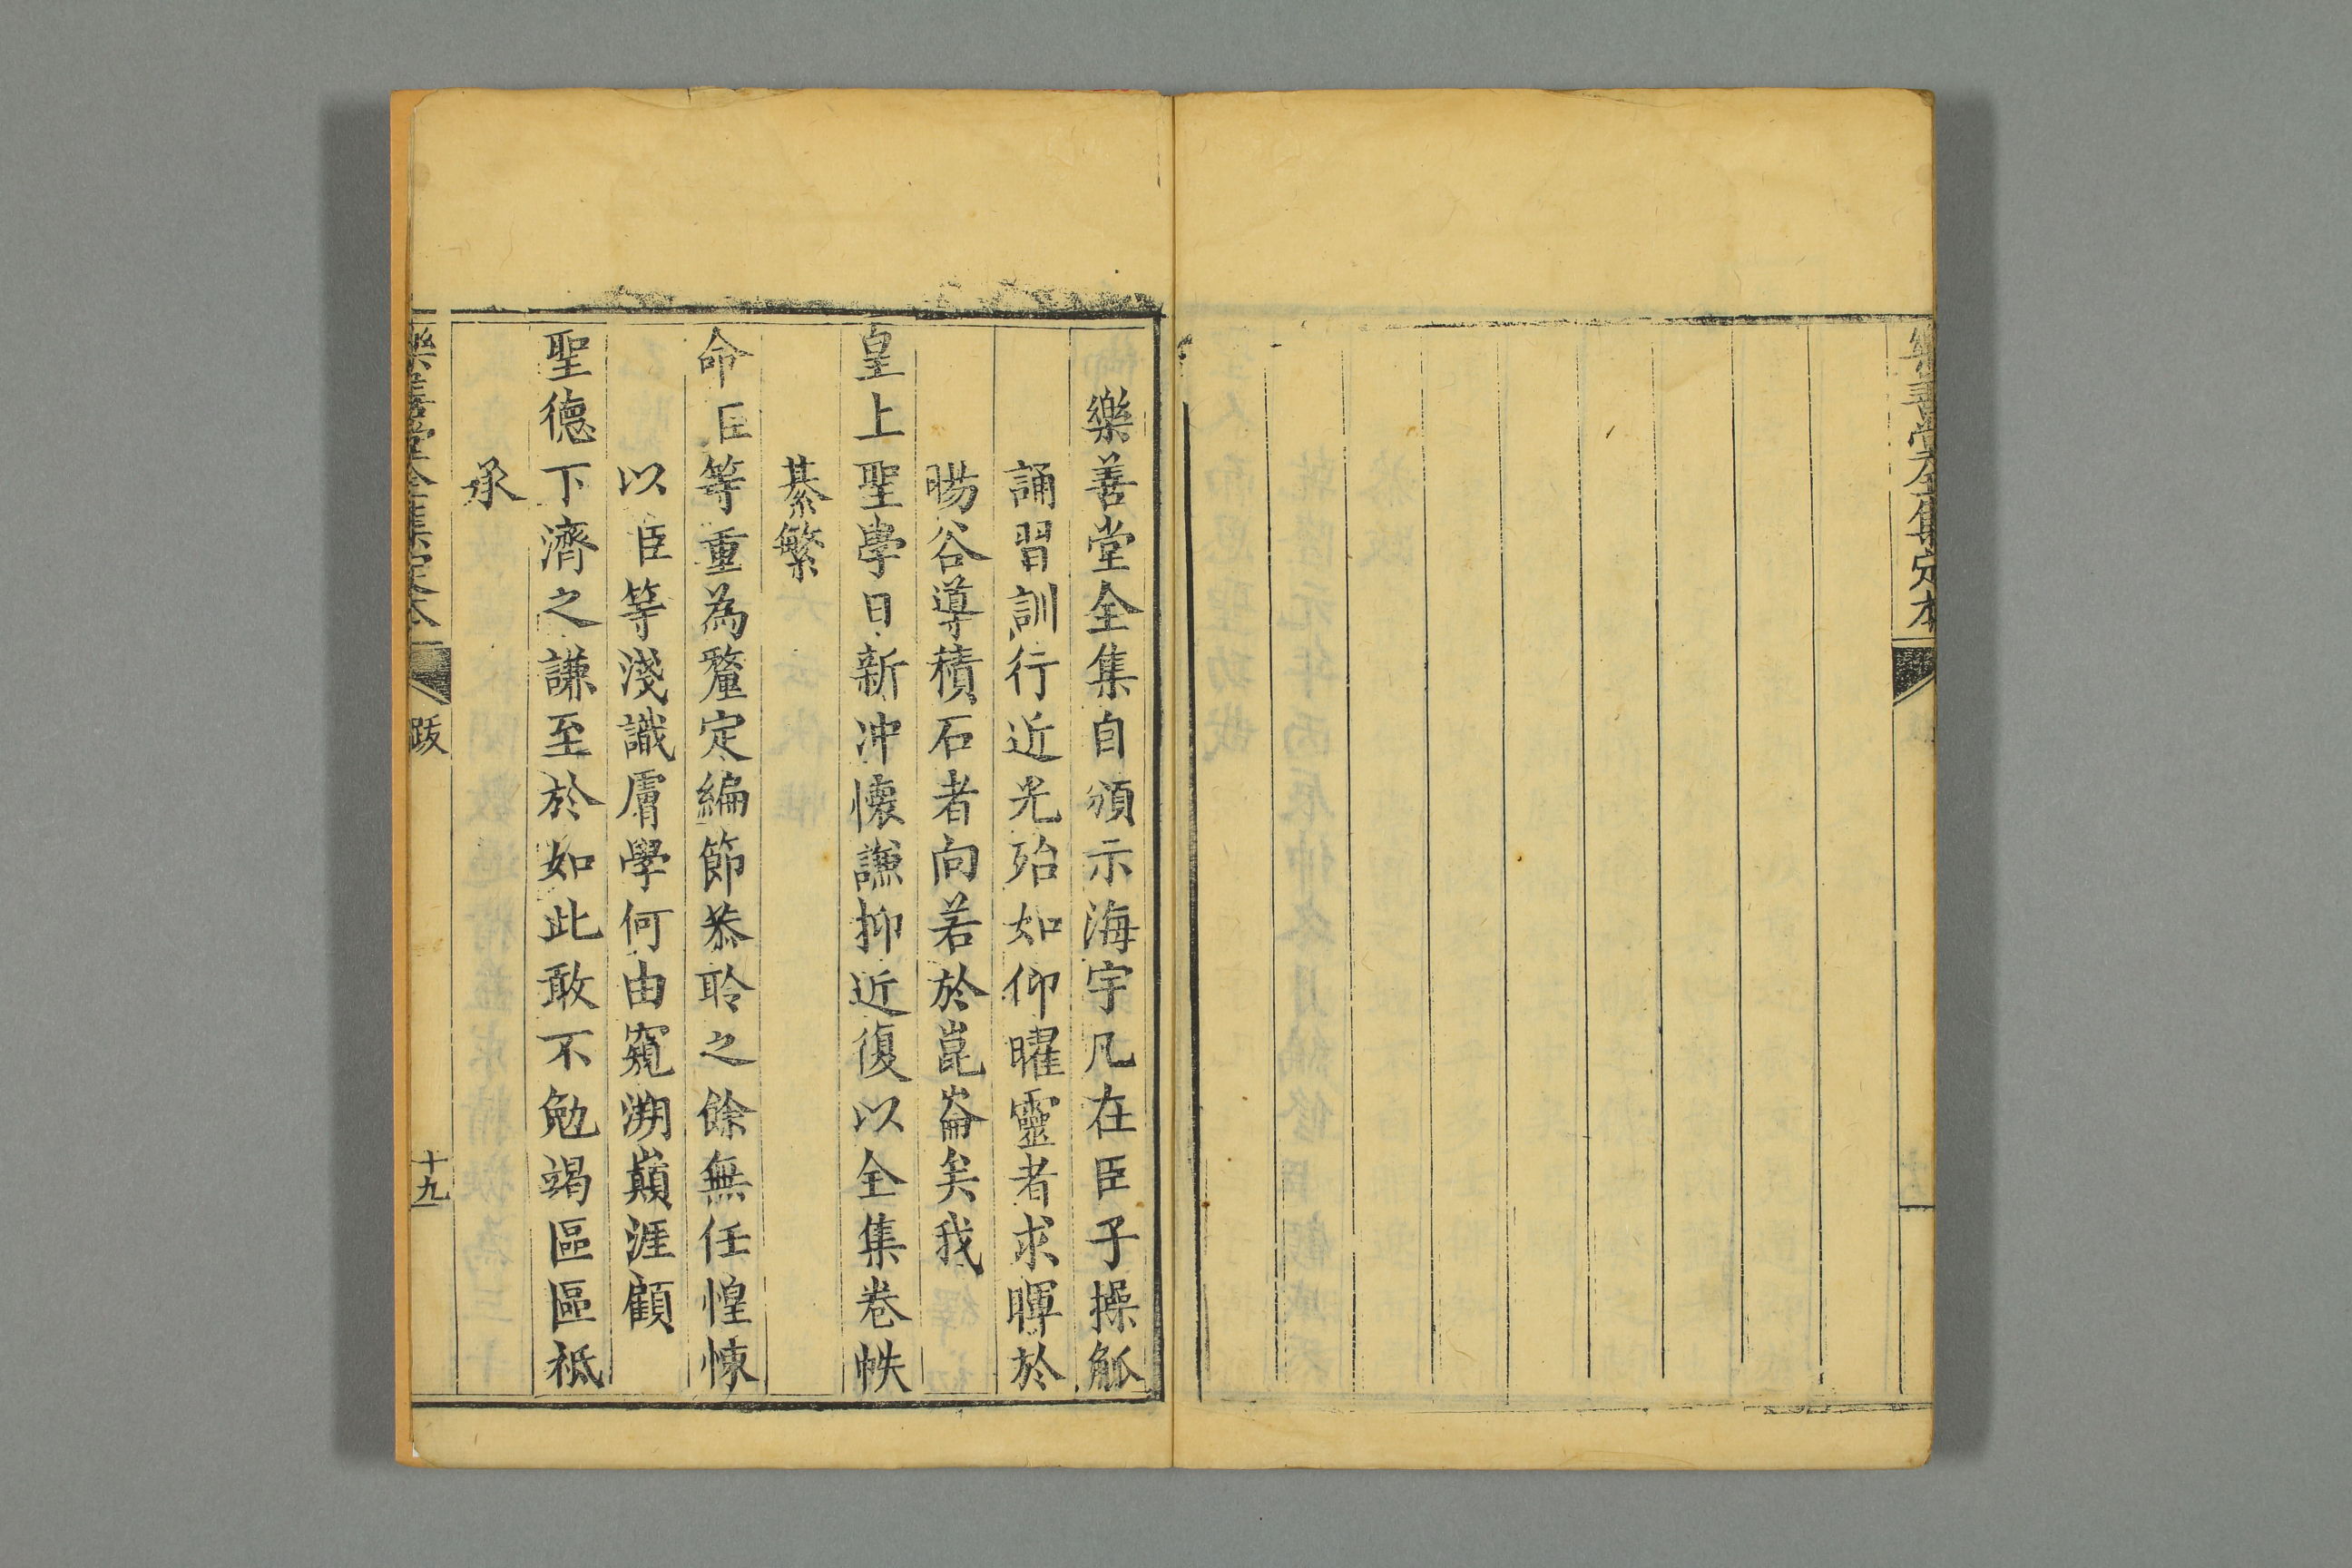 樂善堂全集定本
樂善堂全集自頒示海宇凡在臣子操觚
誦習訓行近光殆如仰曜靈者求暉於
暘谷導積石者向若於崑崙矣我
皇上聖學日新冲懷謙抑近復以全集卷帙
綦繁
命臣等重為釐定編節恭聆之餘無任惶悚
以臣等淺識膚學何由窺溯巔涯顧
聖德下濟之謙至於如此敢不勉竭區區祗
承
樂善堂全集定本 跋 十九